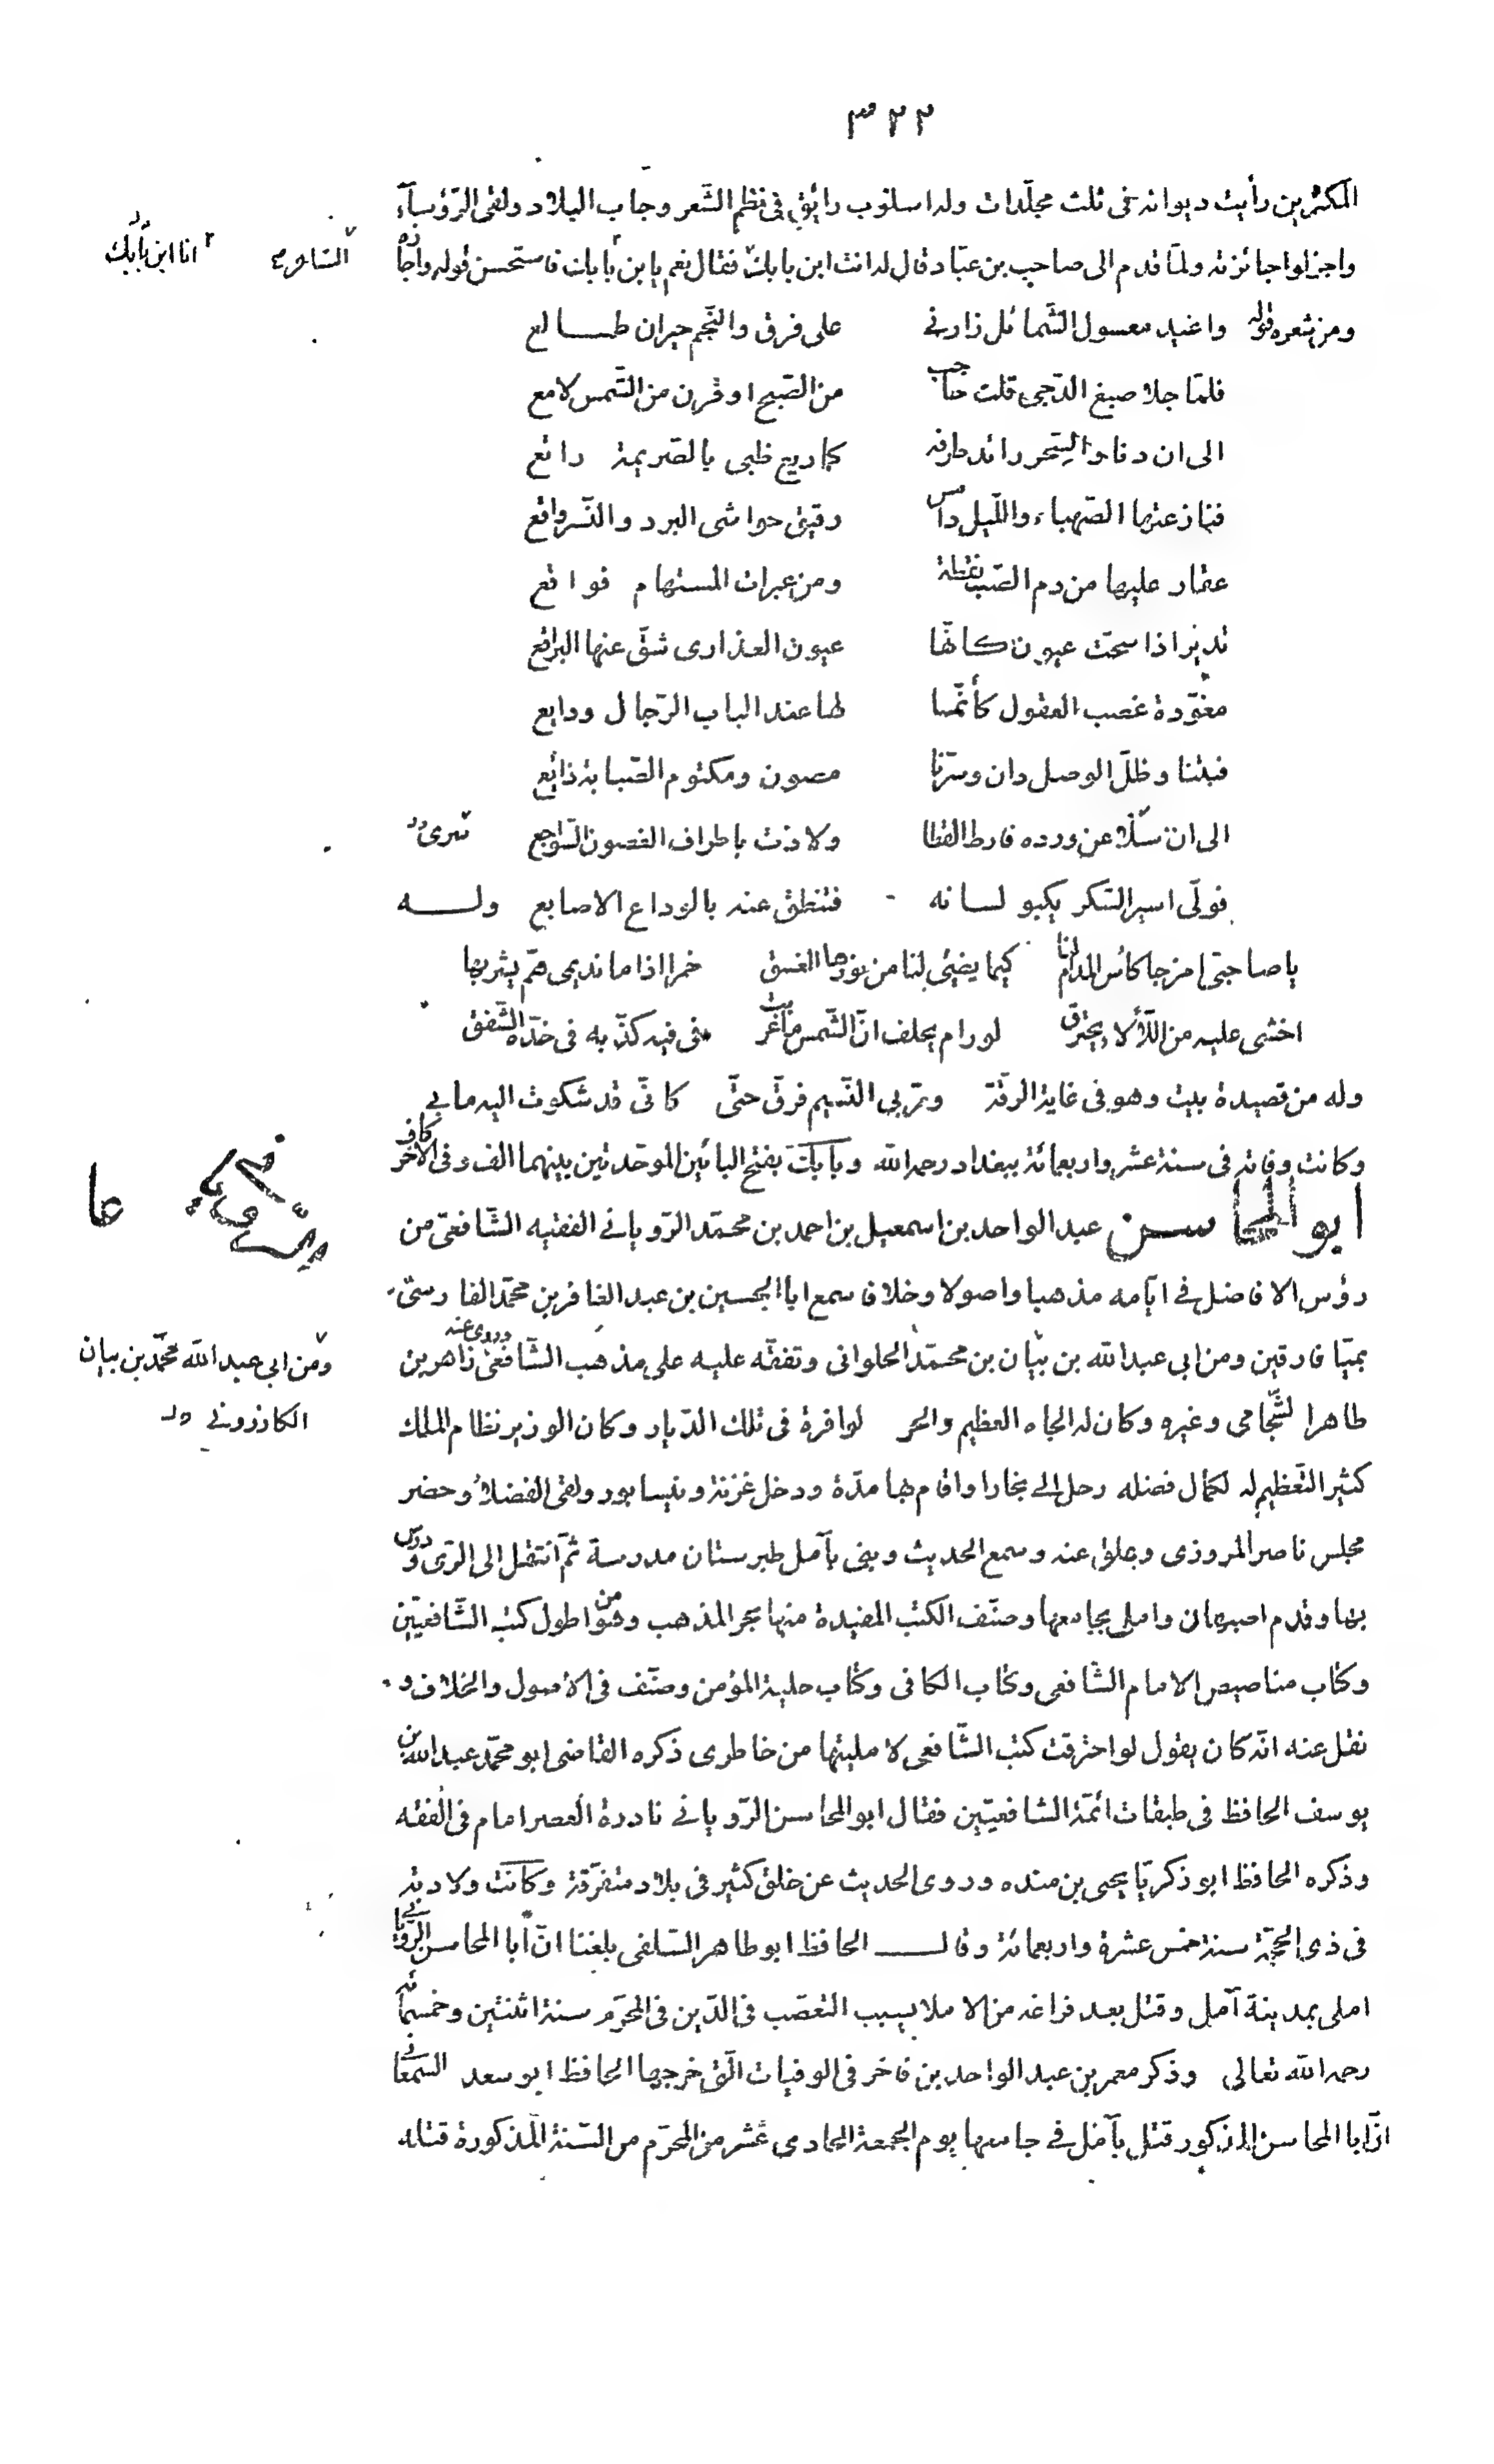 ٣٢٢
المكثرين رأيت ديوانه فى ثلث مجلّدات وله اسلوب رايق فى نظم الشّعر وجاب البلاد ولقى الرّؤساء
واجزلوا جائزته ولمّا قدم الى صاحب بن عبّاد قال له انت ابن بابك فقال نعم يا ابن بابك فاستحسن قوله واجازه
الشاعر انا ابن بابك
ومن شعره قوله واغيد معسول الشّمائل زارنى على فرق والنّجم حيران طالع
فلمّا جلا صبغ الدّجى قلت حاجب من الصّبح او قرن من الشّمس لامع
الى ان دنا والسّحر رائد طرفه كما ريع ظبى بالصّريمة رائع
فنازعتها الصّهباء واللّيل دامس رقيق حواشى البرد والنّسر واقع
عقار عليها من دم الصّب نقطة ومن عبرات المستهام فواقع
تدير اذا سحّت عيون كانّها عيون العذارى شقّ عنها البراقع
معوّدة غصب العقول كأنّما لها عند الباب الرّجال ودايع
فبتنا وظلّ الوصل دان وسرّنا مصون ومكتوم الصّبابة ذايع
الى ان سلا عن ورده فارط القطا ولاذت باطراف الغصون السّواجع
ترى
فولّى اسير السّكر يكبو لسانه فتنطق عنه بالوداع الاصابع وله
يا صاحبىّ امزجا كاس المدام لنا كيما يضيئى لنا من نورها الغسق خمرا اذا ما نديمى همّ يشربها
اخشى عليه من اللّألاء يحترق لو رام يحلف انّ الشّمس ما غربت فى فيه كذّبه فى خدّه الشّفق
وله من قصيدة بيت وهو فى غاية الرقّة ومرّ بى النّسيم فرقّ حتّى كانّى قد شكوت اليه مابى
وكانت وفاته فى سنة عشر واربعمائة ببغداد رحمه الله وبابك بفتح البائين الموحّدتين بينهما الف وفى الآخر كاف
ابو المحاسن عبد الواحد بن اسمعيل بن احمد بن محمّد الرّويانى الفقيه الشّافعىّ من
رؤس الافاضل فى ايّامه مذهبا واصولا وخلافا سمع ابا الحسين بن عبد الغافر بن محمّد الفارسىّ
بميّافارقين ومن ابى عبد الله بن بيان بن محمّد الحلوانى وتفقّه عليه على مذهب الشّافعى وروى عنه زاهر بن
ومن ابى عبد الله محمّد بن بيان
الكازرونى
طاهر الشّحّامى وغيره وكان له الجاه العظيم والحر لوافرة فى تلك الدّيار وكان الوزير نظام الملك
كثير التّعظيم له لكمال فضله رحل الى بخارا واقام بها مدّة ودخل غزنة ونيسابور ولقى الفضلاء وحضر
مجلس ناصر المروزى وعلق عنه وسمع الحديث وبنى بآمل طبرستان مدرسة ثمّ انتقل الى الرّى ودرس
بها وقدم اصبهان واملى بجامعها وصنّف الكتب المفيدة منها بحر المذهب وهو من اطول كتب الشّافعيّين
وكتاب مناصيص الامام الشّافعى وكتاب الكافى وكتاب حلية المؤمن وصنّف فى الاصول والخلاف و
نقل عنه انّه كان يقول لو احترقت كتب الشّافعى لامليتها من خاطرى ذكره القاضى ابو محمّد عبد الله بن
يوسف الحافظ فى طبقات ائمّة الشافعيّين فقال ابو المحاسن الرّويانى نادرة العصر امام فى الفقه
وذكره الحافظ ابو زكريّا يحيى بن منده وروى الحديث عن خلق كثير فى بلاد متفرّقة وكانت ولادته
فى ذى الحجّة سنة خمس عشرة واربعمائة وقال الحافظ ابو طاهر السّلفى بلغنا انّ ابا المحاسن الرّويانى
املى بمدينة آمل وقتل بعد فراغه من الاملا بسبب التعصّب فى الدّين فى المحرّم سنة اثنتين وخمسمائه
رحمه الله تعالى وذكر معمر بن عبد الواحد بن فاخر فى الوفيات الّتى خرجها الحافظ ابو سعد السّمعانى
انّ ابا المحاسن المذكور قتل بآمل فى جامعها يوم الجمعة الحادى عشر من المحرّم من السّنة المذكورة قتله